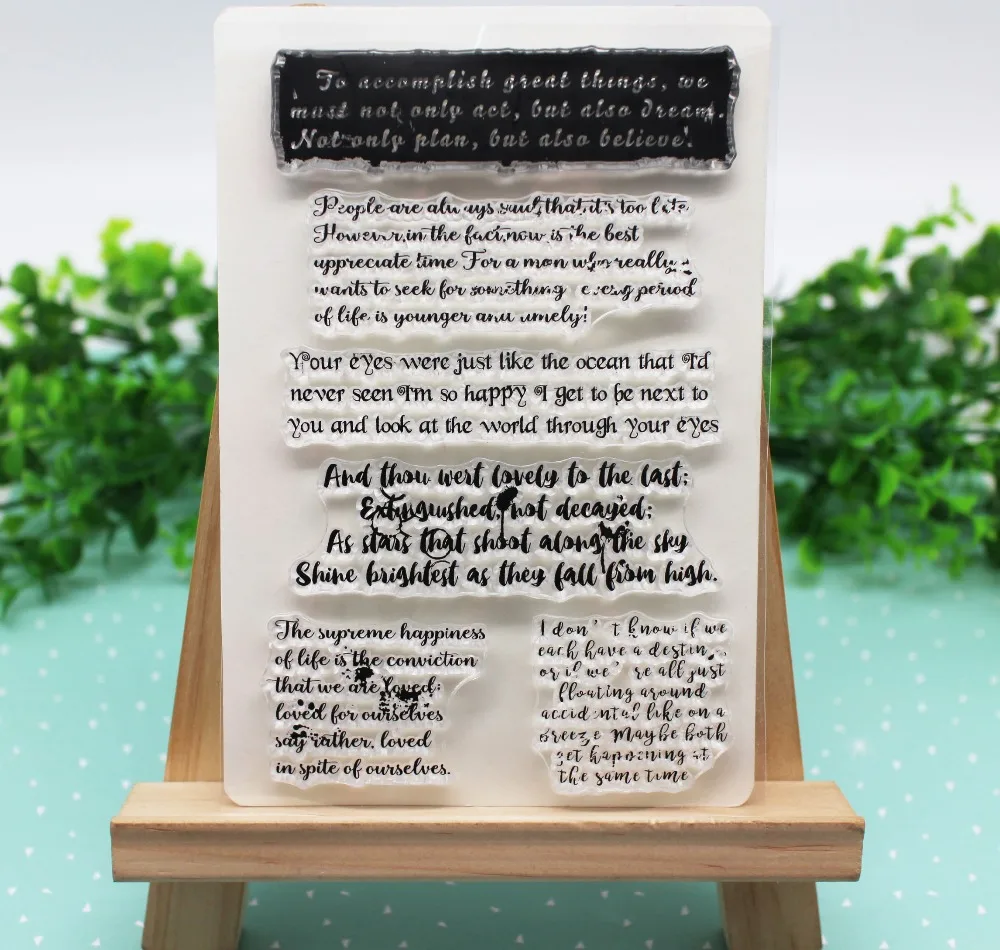 To accomplish great things, we
must not only act, but also dream.
Not only plan, but also believe!
People are always said, that it's too late.
However, in the fact, now is the best
appreciate time For a man who really
wants to seek for something every period
of life is younger and timely!
Your eyes were just like the ocean that I'd
never seen I'm so happy I get to be next to
you and look at the world through your eyes
And thou wert lovely to the last;
Extinguished, not decayed;
As stars that shoot along the sky
Shine brightest as they fall from high.
The supreme happiness
of life is the conviction
that we are loved;
loved for ourselves
say rather, loved
in spite of ourselves.
I don't know if we
each have a destiny,
or if we're all just
floating around
accidental like on a
breeze Maybe both
get happening at
the same time